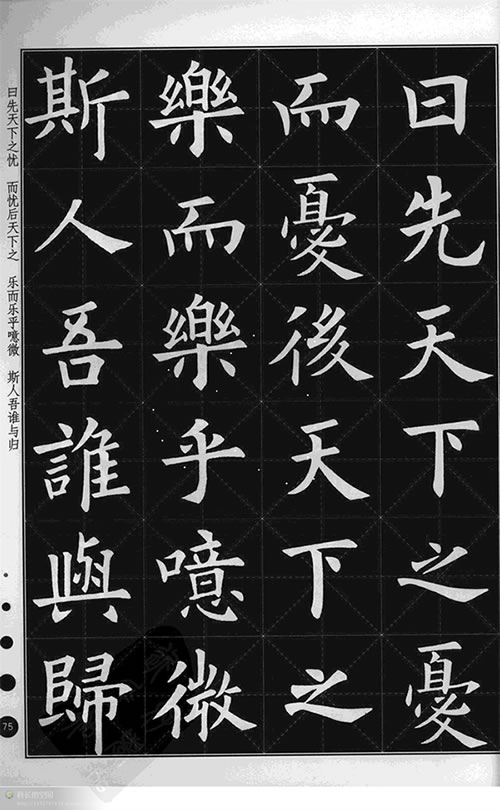 曰先天下之憂
而憂後天下之
樂而樂乎噫微
斯人吾誰與歸
曰先天下之忧 而忧后天下之 乐而乐乎噫微 斯人吾谁与归
75